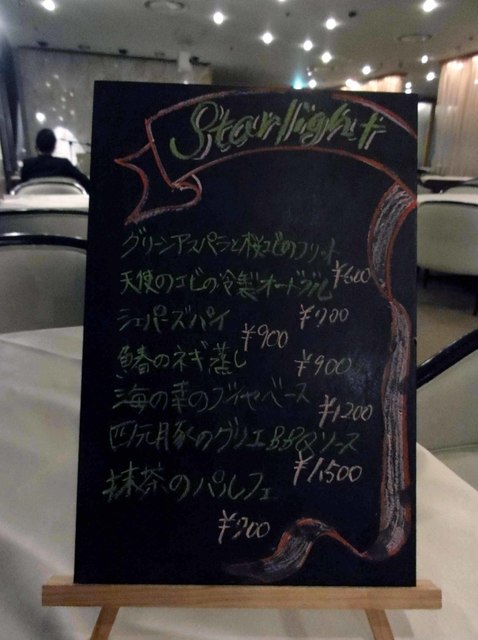 Starlight
グリーンアスパラと桜エビのフリット
¥600
天使のエビの冷製オードブル
¥700
シェパーズパイ
¥900
鰆のネギ蒸し
¥900
海の幸のブイヤベース
¥1,200
四元豚のグリエBBQソース
¥1,500
抹茶のパルフェ
¥700